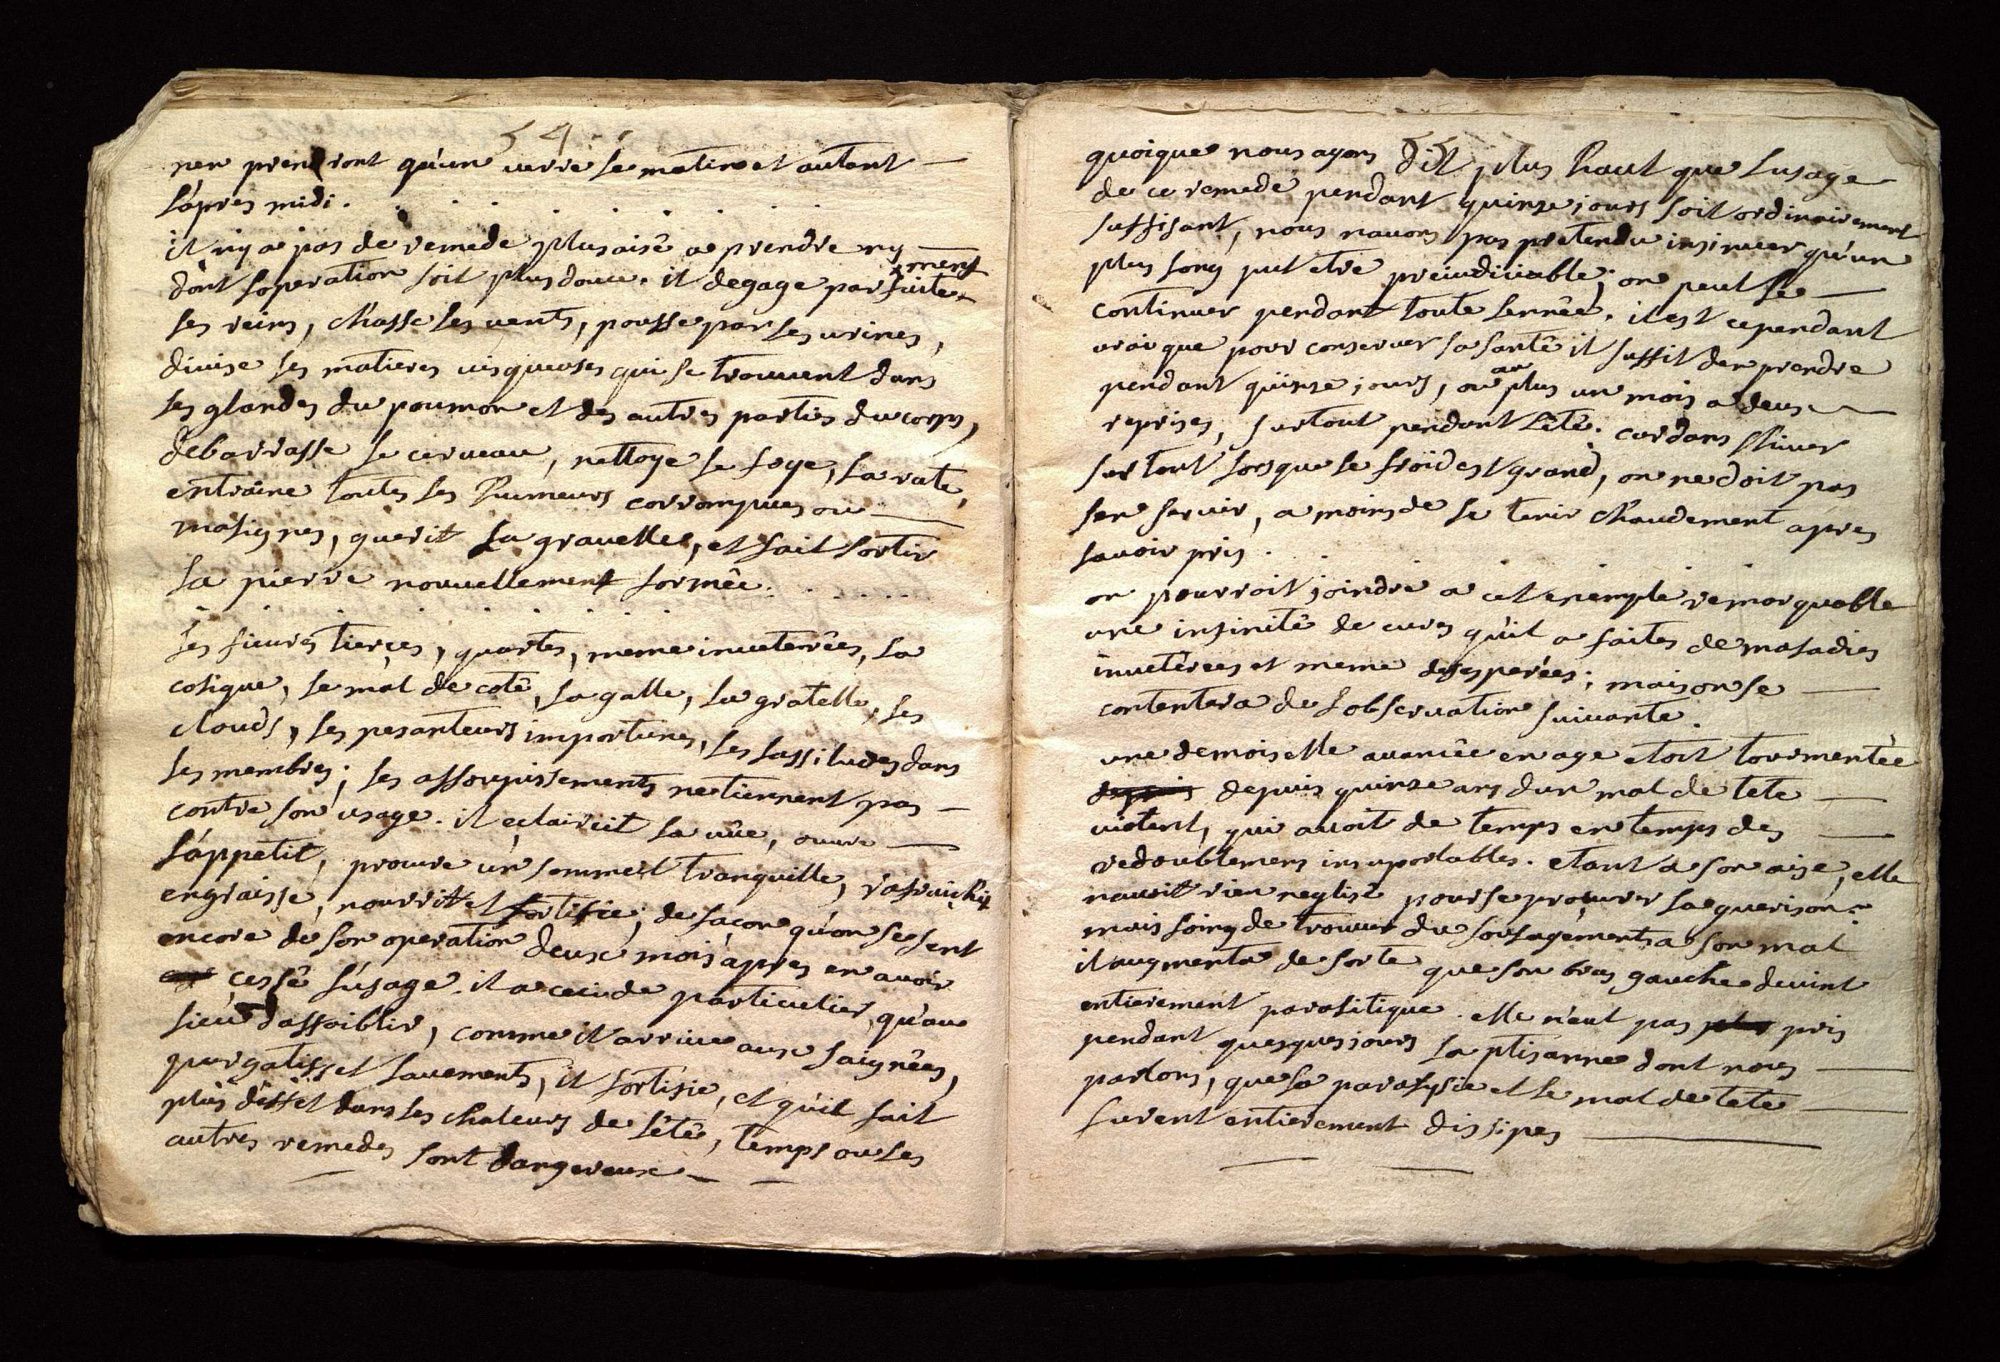 54
nen prendront qu'un verre le matin et autant
l'apres midi.
il n'y a pas de remede plus aisé a prendre ny
dont l'operation soit plus douce. il degage parfaitement
les reins, chasse les vents, pousse par les urines,
divise les matieres visqueuses qui se trouvent dans
les glandes du poumon et des autres parties du corps,
debarrasse le cerveau, nettoye le foye, la rate,
entraine toutes les humeurs corrompues ou
malignes, guerit la gravelle, et fait sortir
la pierre nouvellement formée.
les fievres tierces, quartes, meme inveterées, la
colique, le mal de coté, la galle, la gratelle, les
clouds, les pesanteurs importunes, les lassitudes dans
les membres; les assoupissements ne tiennent pas
contre son usage. il eclaircit la vûe, ouvre
l'appetit, procure un sommeil tranquille, rafraichit
engraisse, nourrit et fortifie; de façon qu'on se sent
encore de son operation deux mois apres en avoir
cessé l'usage. il a ceci de particulier, qu'au
lieu d'affoiblir, comme il arrive aux saignées,
purgatifs et lavements, il fortifie, et qu'il fait
plus d'effet dans les chaleurs de l'été, temps ou les
autres remedes sont dangereux
55
quoique nous ayons dit plus haut que lusage
de ce remede pendant quinze jours soit ordinairement
suffisant, nous navons pas pretendu insinuer qu'un
plus long put etre preiudiciable; on peut le
continuer pendant toute lennée. il est cependant
vrai que pour conserver sa santé il suffit den prendre
pendant quinze jours, ou au plus un mois a deux
reprises, surtout pendant l'été. car dans l'hiver
surtout lorsque le froid est grand, on ne doit pas
sen servir, a moins de se tenir chaudement apres
lavoir pris.
on pourroit joindre a cet exemple remarquable
une infinité de cures qu'il a faites de maladies
inveterées et meme desesperées; mais on se
contentera de lobservation suivante.
une demoiselle avancée en age etoit tourmentée
depuis quinze ans dun mal de tete
violent, qui avoit de temps en temps des
redoublemens insuportables. etant a son aise, elle
navoit rien neglisé pour se procurer sa guerison
mais loing de trouver du soulagement a son mal
il augmenta de sorte que son bras gauche devint
entierement paralitique. elle n'eut pas pris
pendant quesques jours la ptisanne dont nous
parlons, que la paralysie et le mal de tete
furent entierement dissipes